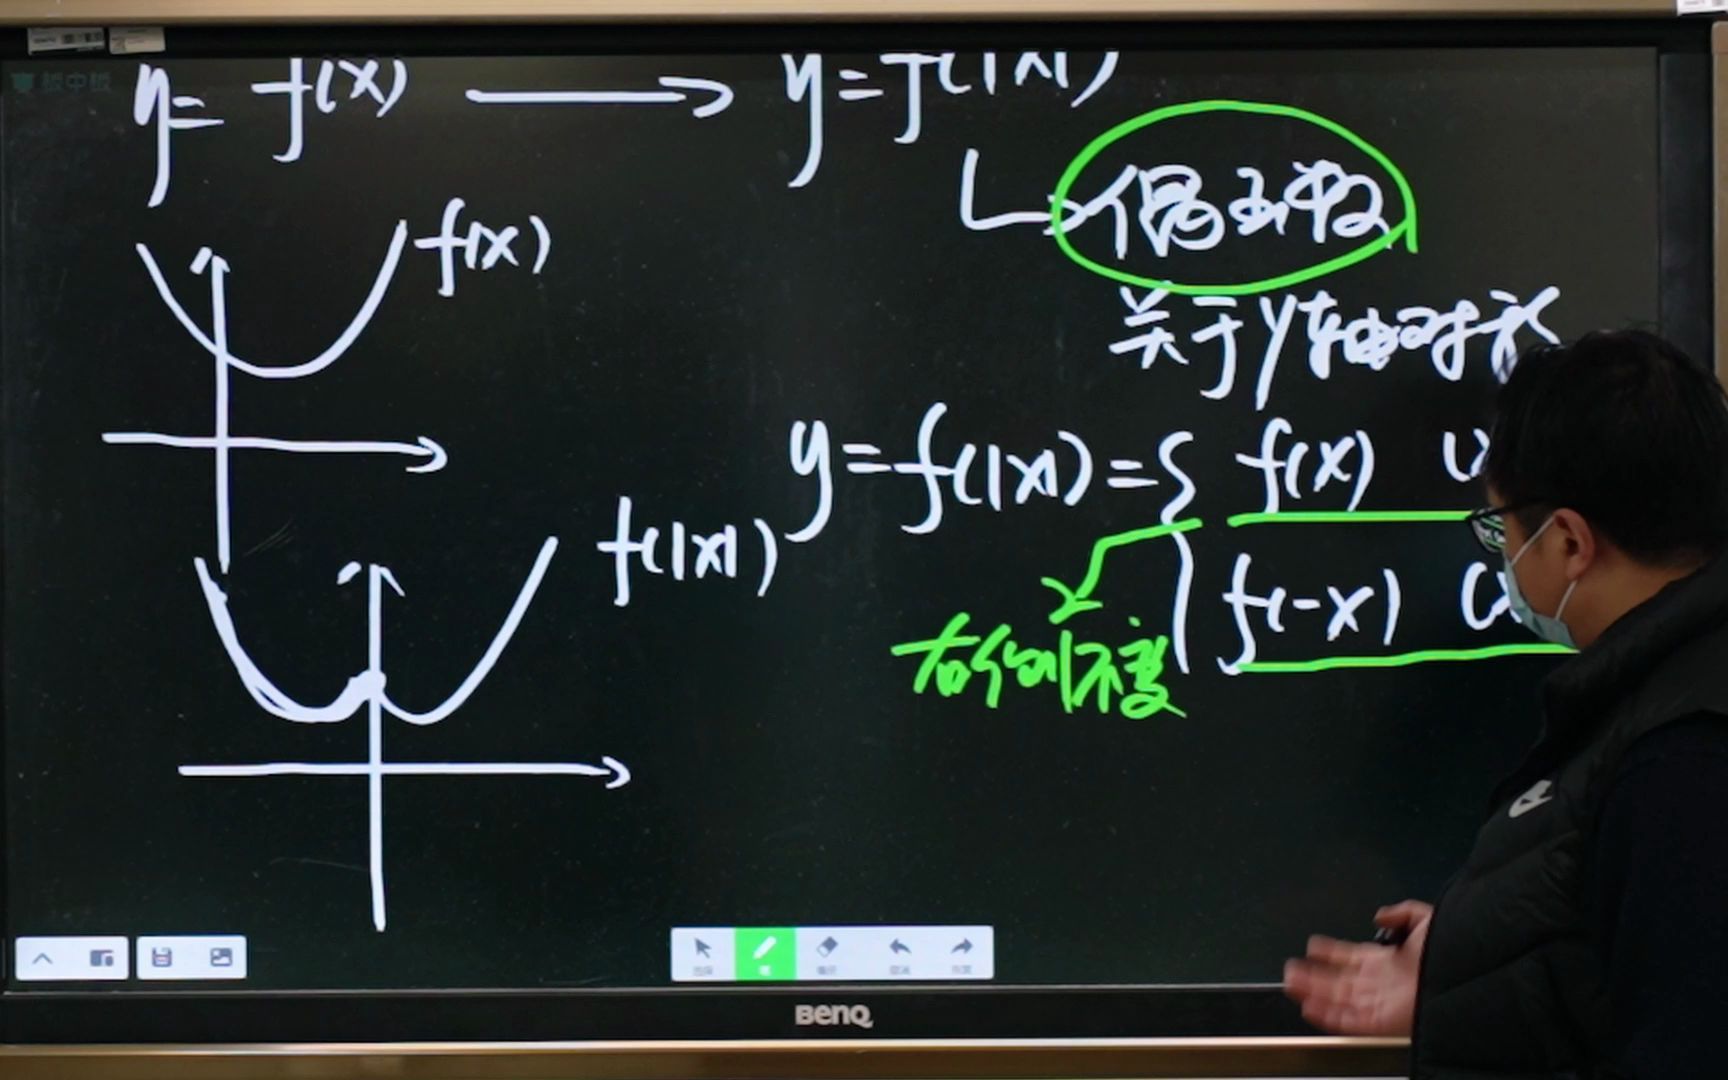 y = f(x) → y = f(|x|)
偶函数
关于y轴对称
f(x)
y = f(|x|) = { f(x) (x
f(|x|)
f(-x) (x
右侧不变
BenQ